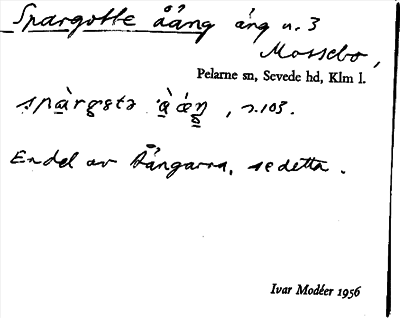 Spargotte åång äng n. 3
Mossebo,
Pelarne sn, Sevede hd, Klm l.
, s. 103.
Endel av Åångarna, se detta.
Ivar Modéer 1956